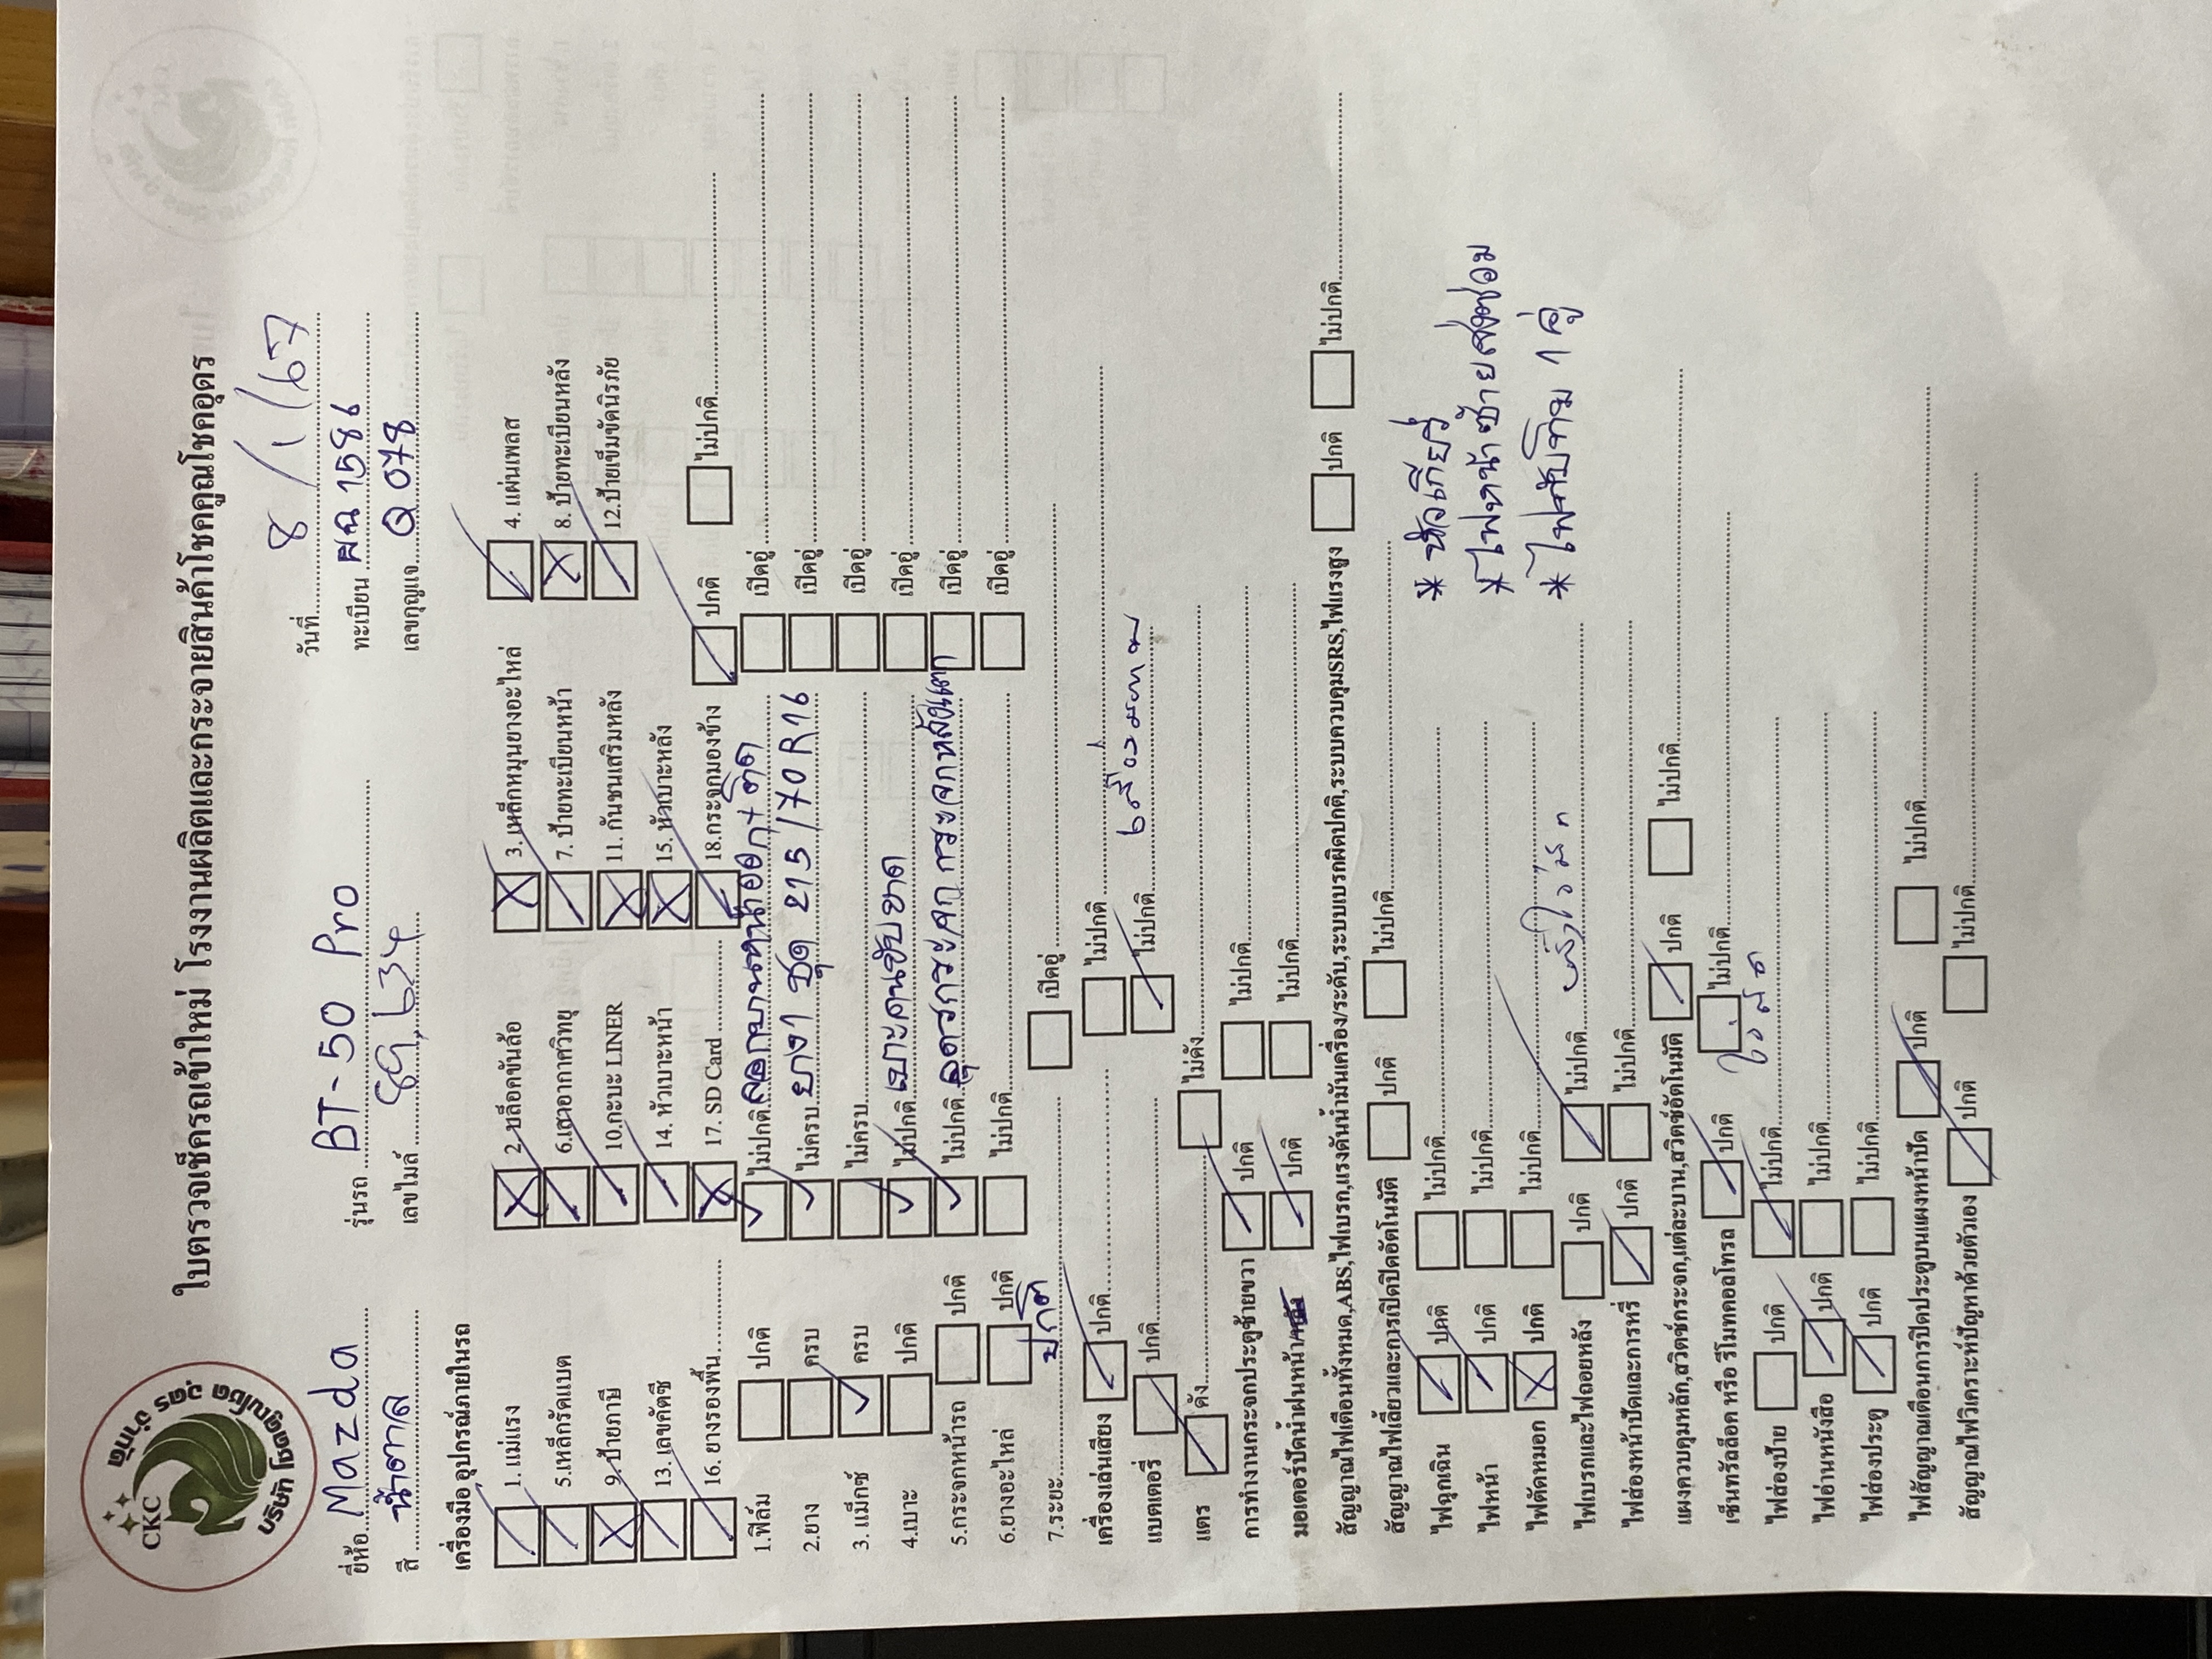 CKC
บริษัท โชคคูณโชค อุดร จำกัด
ใบตรวจเช็ครถเข้าใหม่ โรงงานผลิตและกระจายสินค้าโชคคูณโชคอุดร
วันที่ 8/1/67
ยี่ห้อ Mazda รุ่นรถ BT-50 Pro ทะเบียน ผฉ 1586
สี น้ำตาล เลขไมล์ เลขกุญแจ Q 078
เครื่องมือ อุปกรณ์ภายในรถ
1. แม่แรง 2. บล็อคขันล้อ 3. เหล็กหมุนยางอะไหล่ 4. แผ่นเพลส
5.เหล็กรัดแบต 6.เสาอากาศวิทยุ 7. ป้ายทะเบียนหน้า 8. ป้ายทะเบียนหลัง
9. ป้ายภาษี 10.กะบะ LINER 11. กันชนเสริมหลัง 12.ป้ายเข็มขัดนิรภัย
13. เลขคัตซี 14. หัวเบาะหน้า 15. หัวเบาะหลัง
16. ยางรองพื้น 17. SD Card 18.กระจกมองข้าง ปกติ ไม่ปกติ
1.ฟิล์ม ปกติ ไม่ปกติ ลอกบานหน้าออก+ติด เปิดอู่
2.ยาง ครบ ไม่ครบ ยาง 1 ชุด 215/70 R16 เปิดอู่
3. แม็กซ์ ครบ ไม่ครบ เปิดอู่
4.เบาะ ปกติ ไม่ปกติ เบาะคนขับขาด เปิดอู่
5.กระจกหน้ารถ ปกติ ไม่ปกติ กระจก กระจกหลังแตก เปิดอู่
6.ยางอะไหล่ ปกติ ไม่ปกติ เปิดอู่
7.ระยะ ปกติ เปิดอู่
เครื่องเล่นเสียง ปกติ ไม่ปกติ
แบตเตอรี่ ปกติ ไม่ปกติ เสื่อมสภาพ
แตร ดัง ไม่ดัง
การทำงานกระจกประตูซ้ายขวา ปกติ ไม่ปกติ
มอเตอร์ปัดน้ำฝนหน้า ปกติ ไม่ปกติ
สัญญาณไฟเตือนทั้งหมด,ABS,ไฟเบรก,แรงดันน้ำมันเครื่อง/ระดับ,ระบบเบรกผิดปกติ,ระบบควบคุมSRS,ไฟแรงสูง ปกติ ไม่ปกติ
สัญญาณไฟเลี้ยวและการเปิดปิดอัตโนมัติ ปกติ ไม่ปกติ
ไฟฉุกเฉิน ปกติ ไม่ปกติ * หัวเกียร์
ไฟหน้า ปกติ ไม่ปกติ * ไฟหน้าซ้ายส่งซ่อม
ไฟตัดหมอก ปกติ ไม่ปกติ * ไฟทับทิม 1 คู่
ไฟเบรกและไฟถอยหลัง ปกติ ไม่ปกติ
ไฟส่องหน้าปัดและการหรี่ ปกติ ไม่ปกติ
แผงควบคุมหลัก,สวิตช์กระจก,แต่ละบาน,สวิตช์อัตโนมัติ ปกติ ไม่ปกติ
เซ็นทรัลล็อค หรือ รีโมทคอลโทรล ปกติ ไม่ปกติ
ไฟส่องป้าย ปกติ ไม่ปกติ ไม่ติด
ไฟอ่านหนังสือ ปกติ ไม่ปกติ
ไฟส่องประตู ปกติ ไม่ปกติ
ไฟสัญญาณเตือนการปิดประตูบนแผงหน้าปัด ปกติ ไม่ปกติ
สัญญาณไฟวิเคราะห์ปัญหาด้วยตัวเอง ปกติ ไม่ปกติ